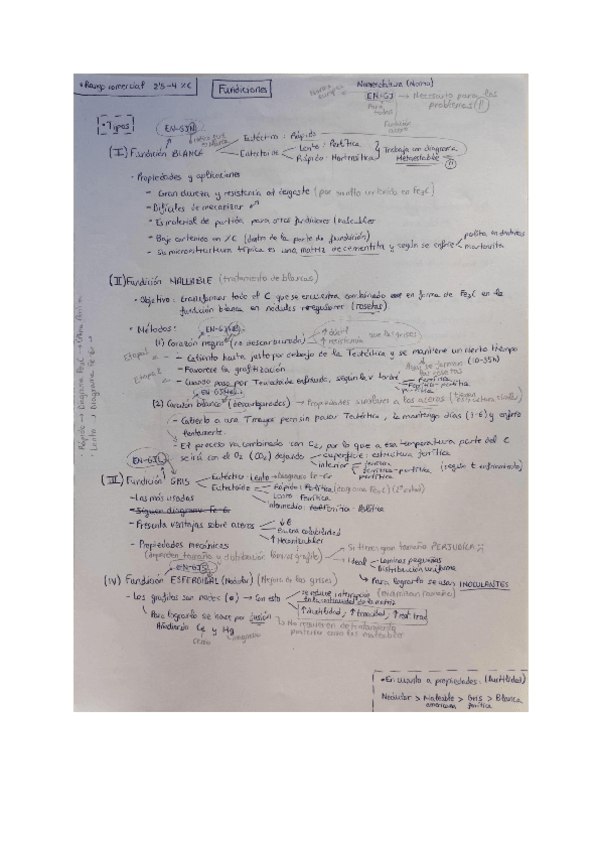 • Rango comercial 2'5-4 %C
Fundiciones
Nomenclatura (Norma)
Norma europea
EN-GJ → Necesario para los problemas
Fundición
• Tipos
EN-GJN
(I) Fundición BLANCA
Eutéctico: Rápido
Eutectoide
Lento: Perlítica
Rápido: Martensítica
Trabaja con diagrama Metaestable
• Propiedades y aplicaciones
- Gran dureza y resistencia al desgaste (por su alto contenido en Fe3C)
- Difíciles de mecanizar
- Es material de partida para otras fundiciones (maleables)
- Bajo contenido en %C (dentro de la parte de fundición)
- Su microestructura típica es una matriz de cementita y según se enfríe
perlita
martensita
(II) Fundición MALEABLE (tratamiento de blancas)
• Objetivo: transformar todo el C que se encuentra combinado en forma de Fe3C en la
fundición blanca en nódulos irregulares (rosetas)
• Métodos:
(1) Corazón negro (no descarburado)
↑ dúctil
↑ resistencia
que las grises
Etapa 1
- Caliento hasta justo por debajo de la Teutéctica y se mantiene un cierto tiempo
(10-35h)
Aquí se forman las rosetas
Etapa 2
- Favorece la grafitización
- Cuando pase por Teutectoide enfriando, según la v tendré
Ferrítica
Ferrito-perlítica
Perlítica
(2) Corazón blanco (descarburadas) → Propiedades similares a los aceros
- Caliento a una T mayor pero sin pasar Teutéctica, lo mantengo días (2-6) y enfrío
lentamente.
- El proceso va combinado con O2, por lo que a esa temperatura parte del C
se irá con el O2 (CO2) dejando
superficie: estructura ferrítica
interior
ferrítica
ferrítica-perlítica
perlítica
(según t enfriamiento)
• Rápido → Diagrama Fe3C
• Lento → Diagrama Fe-Gr
EN-GJL
(III) Fundición GRIS
Eutéctico: Lento → Diagrama Fe-Gr
Eutectoide
Rápido: Perlítica (diagrama Fe3C)
Lento: Ferrítica
Intermedio: Ferrítica-Perlítica
- Las más usadas
- Siguen diagrama Fe-G
- Presenta ventajas sobre aceros
↓ €
Buena colabilidad
↑ Mecanizables
- Propiedades mecánicas
(dependen tamaño y distribución láminas grafito)
Si tienen gran tamaño PERJUDICA
Ideal
Láminas pequeñas
Distribución uniforme
Para lograrlo se usan INOCULANTES
EN-GJS
(IV) Fundición ESFEROIDAL (Nodular) (Mejora de las grises)
- Los grafitos son partes (•) → Con esto
se reduce interrupción
en la continuidad de la matriz
↑ ductilidad, ↑ tenacidad, ↑ resist trac
Para lograrlo se hace por fusión
Añadiendo Ce y Mg
Cerio
Magnesio
No requieren de tratamiento
posterior como las maleables
• En cuanto a propiedades: (Ductilidad)
Nodular > Maleable > Gris > Blanca
americana
ferrítica